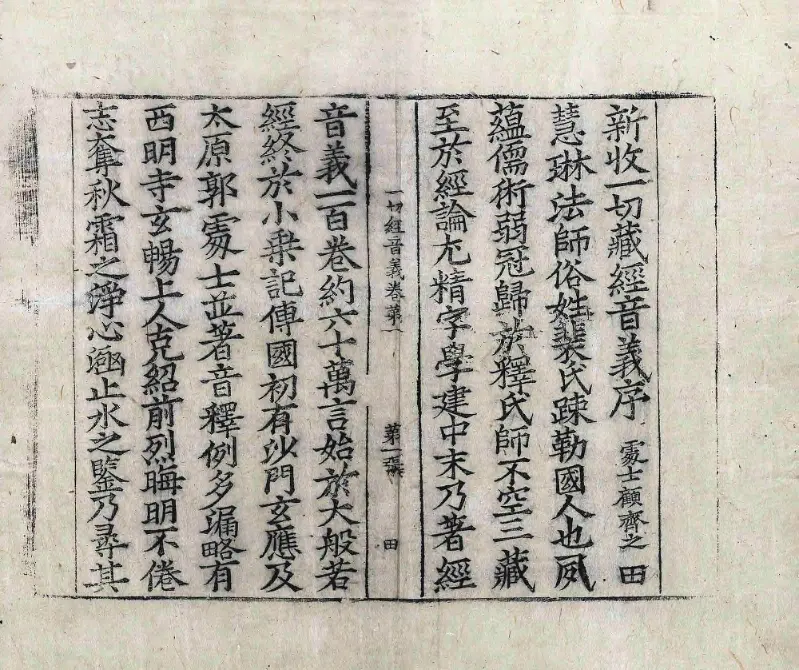 新收一切藏經音義序 處士顧齊之 田
慧琳法師俗姓裴氏踈勒國人也夙
蘊儒術弱冠歸於釋氏師不空三藏
至於經論尤精字學建中末乃著經
一切經音義卷第一 第一張 田
音義一百卷約六十萬言始於大般若
經終於小乗記傳國初有沙門玄應及
太原郭處士並著音釋例多漏略有
西明寺玄暢上人克紹前烈晦明不倦
志奪秋霜之淨心𭰹止水之鑒乃尋其